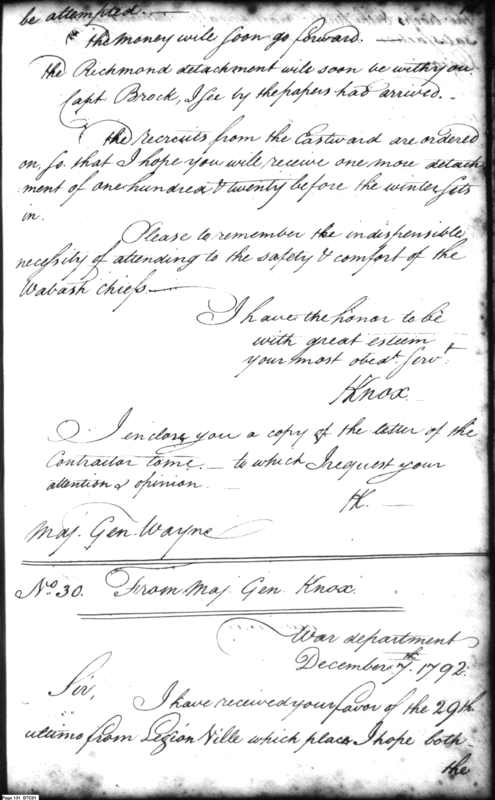 be attempted. —
the money will soon go forward.
the Richmond detachment will soon be with you
Capt Brock, I see by the papers had arrived. —
the recruits from the Eastward are ordered
on, so that I hope you will receive one more detach
ment of one hundred & twenty before the winter sets
in.
Please to remember the indispensible
necessity of attending to the safety & comfort of the
Wabash chiefs —
I have the honor to be
with great esteem
your most obedt. Servt.
HKnox
I enclose you a copy of the letter of the
Contractor to me. — to which I request your
attention & opinion. —
HK. —
Maj. Gen. Wayne
No. 30. From Maj Gen Knox.
War department
December 7th. 1792
Sir,
I have received your favor of the 29th
ultimo from Legion Ville which place I hope both
the
Page 131 DTC01